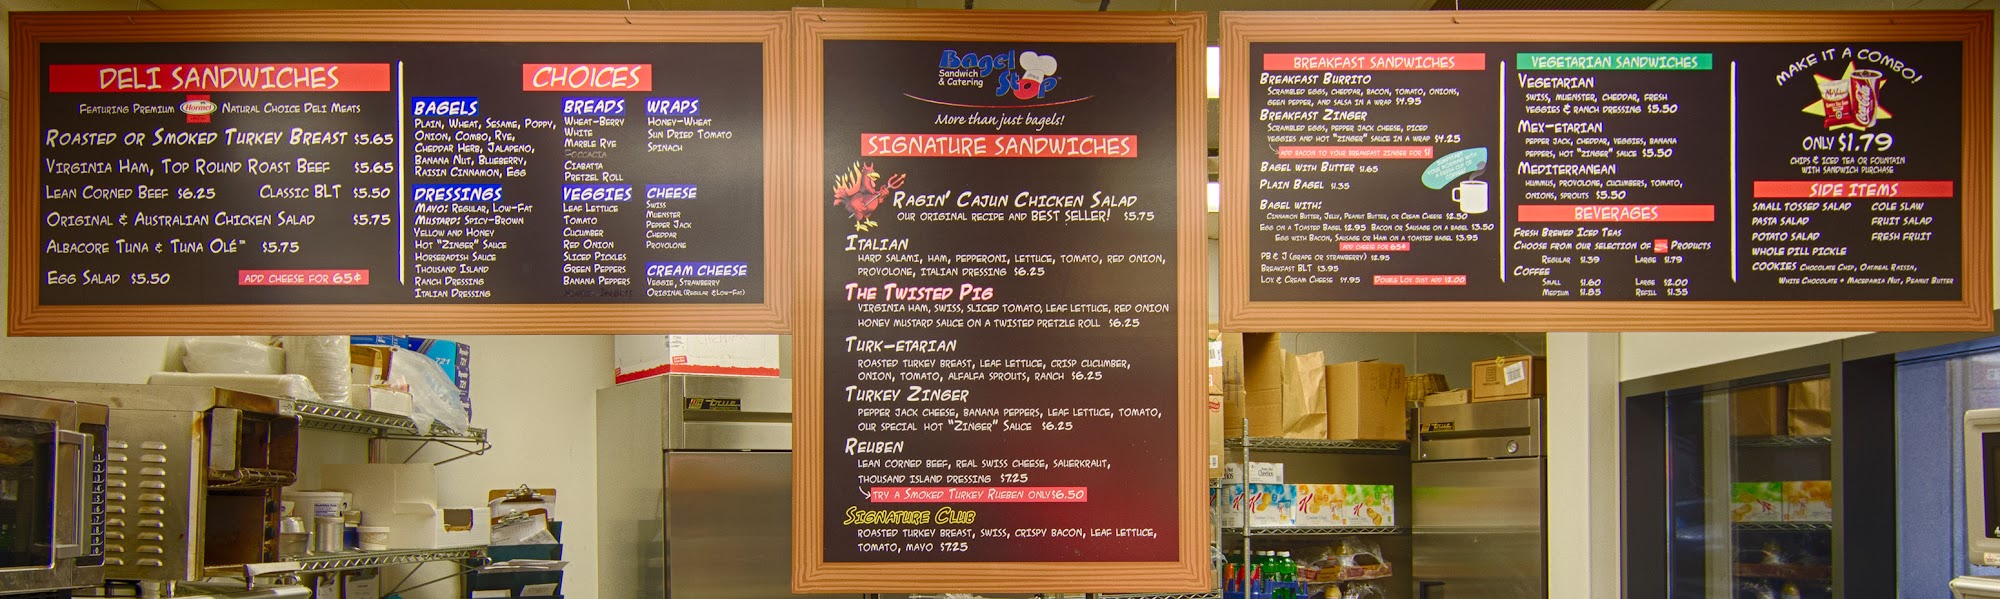 DELI SANDWICHES
FEATURING PREMIUM Hormel NATURAL CHOICE DELI MEATS
ROASTED OR SMOKED TURKEY BREAST $5.65
VIRGINIA HAM, TOP ROUND ROAST BEEF $5.65
LEAN CORNED BEEF $6.25 CLASSIC BLT $5.50
ORIGINAL & AUSTRALIAN CHICKEN SALAD $5.75
ALBACORE TUNA & TUNA OLÉ™ $5.75
EGG SALAD $5.50 ADD CHEESE FOR 65¢
CHOICES
BAGELS
PLAIN, WHEAT, SESAME, POPPY,
ONION, COMBO, RYE,
CHEDDAR HERB, JALAPENO,
BANANA NUT, BLUEBERRY,
RAISIN CINNAMON, EGG
DRESSINGS
MAYO: REGULAR, LOW-FAT
MUSTARD: SPICY-BROWN
YELLOW AND HONEY
HOT "ZINGER" SAUCE
HORSERADISH SAUCE
THOUSAND ISLAND
RANCH DRESSING
ITALIAN DRESSING
BREADS
WHEAT-BERRY
WHITE
MARBLE RYE
FOCCACIA
CIABATTA
PRETZEL ROLL
VEGGIES
LEAF LETTUCE
TOMATO
CUCUMBER
RED ONION
SLICED PICKLES
GREEN PEPPERS
BANANA PEPPERS
WRAPS
HONEY-WHEAT
SUN DRIED TOMATO
SPINACH
CHEESE
SWISS
MUENSTER
PEPPER JACK
CHEDDAR
PROVOLONE
CREAM CHEESE
VEGGIE, STRAWBERRY
ORIGINAL (REGULAR & LOW-FAT)
Bagel Stop™
Sandwich
& Catering
More than just bagels!
SIGNATURE SANDWICHES
RAGIN' CAJUN CHICKEN SALAD
OUR ORIGINAL RECIPE AND BEST SELLER! $5.75
ITALIAN
HARD SALAMI, HAM, PEPPERONI, LETTUCE, TOMATO, RED ONION,
PROVOLONE, ITALIAN DRESSING $6.25
THE TWISTED PIG
VIRGINIA HAM, SWISS, SLICED TOMATO, LEAF LETTUCE, RED ONION
HONEY MUSTARD SAUCE ON A TWISTED PRETZLE ROLL $6.25
TURK-ETARIAN
ROASTED TURKEY BREAST, LEAF LETTUCE, CRISP CUCUMBER,
ONION, TOMATO, ALFALFA SPROUTS, RANCH $6.25
TURKEY ZINGER
PEPPER JACK CHEESE, BANANA PEPPERS, LEAF LETTUCE, TOMATO,
OUR SPECIAL HOT "ZINGER" SAUCE $6.25
REUBEN
LEAN CORNED BEEF, REAL SWISS CHEESE, SAUERKRAUT,
THOUSAND ISLAND DRESSING $7.25
TRY A SMOKED TURKEY RUEBEN ONLY $6.50
SIGNATURE CLUB
ROASTED TURKEY BREAST, SWISS, CRISPY BACON, LEAF LETTUCE,
TOMATO, MAYO $7.25
BREAKFAST SANDWICHES
BREAKFAST BURRITO
SCRAMBLED EGGS, CHEDDAR, BACON, TOMATO, ONIONS,
GEEN PEPPER, AND SALSA IN A WRAP $4.95
BREAKFAST ZINGER
SCRAMBLED EGGS, PEPPER JACK CHEESE, DICED
VEGGIES AND HOT "ZINGER" SAUCE IN A WRAP $4.25
ADD BACON TO YOUR BREAKFAST ZINGER FOR $1
BAGEL WITH BUTTER $1.65
PLAIN BAGEL $1.35
BAGEL WITH:
CINNAMON BUTTER, JELLY, PEANUT BUTTER, OR CREAM CHEESE $2.50
EGG ON A TOASTED BAGEL $2.95 BACON OR SAUSAGE ON A BAGEL $3.50
EGG WITH BACON, SAUSAGE OR HAM ON A TOASTED BAGEL $3.95
ADD CHEESE FOR 65¢
PB & J (GRAPE OR STRAWBERRY) $2.95
BREAKFAST BLT $3.95
LOX & CREAM CHEESE $4.95 DOUBLE LOX JUST ADD $2.00
VEGETARIAN SANDWICHES
VEGETARIAN
SWISS, MUENSTER, CHEDDAR, FRESH
VEGGIES & RANCH DRESSING $5.50
MEX-ETARIAN
PEPPER JACK, CHEDDAR, VEGGIES, BANANA
PEPPERS, HOT "ZINGER" SAUCE $5.50
MEDITERRANEAN
HUMMUS, PROVOLONE, CUCUMBERS, TOMATO,
ONIONS, SPROUTS $5.50
BEVERAGES
FRESH BREWED ICED TEAS
CHOOSE FROM OUR SELECTION OF PRODUCTS
REGULAR $1.39 LARGE $1.79
COFFEE
SMALL $1.60 LARGE $2.00
MEDIUM $1.85 REFILL $1.35
MAKE IT A COMBO!
ONLY $1.79
CHIPS & ICED TEA OR FOUNTAIN
WITH SANDWICH PURCHASE
SIDE ITEMS
SMALL TOSSED SALAD COLE SLAW
PASTA SALAD FRUIT SALAD
POTATO SALAD FRESH FRUIT
WHOLE DILL PICKLE
COOKIES CHOCOLATE CHIP, OATMEAL RAISIN,
WHITE CHOCOLATE & MACEDAMIA NUT, PEANUT BUTTER
true
true